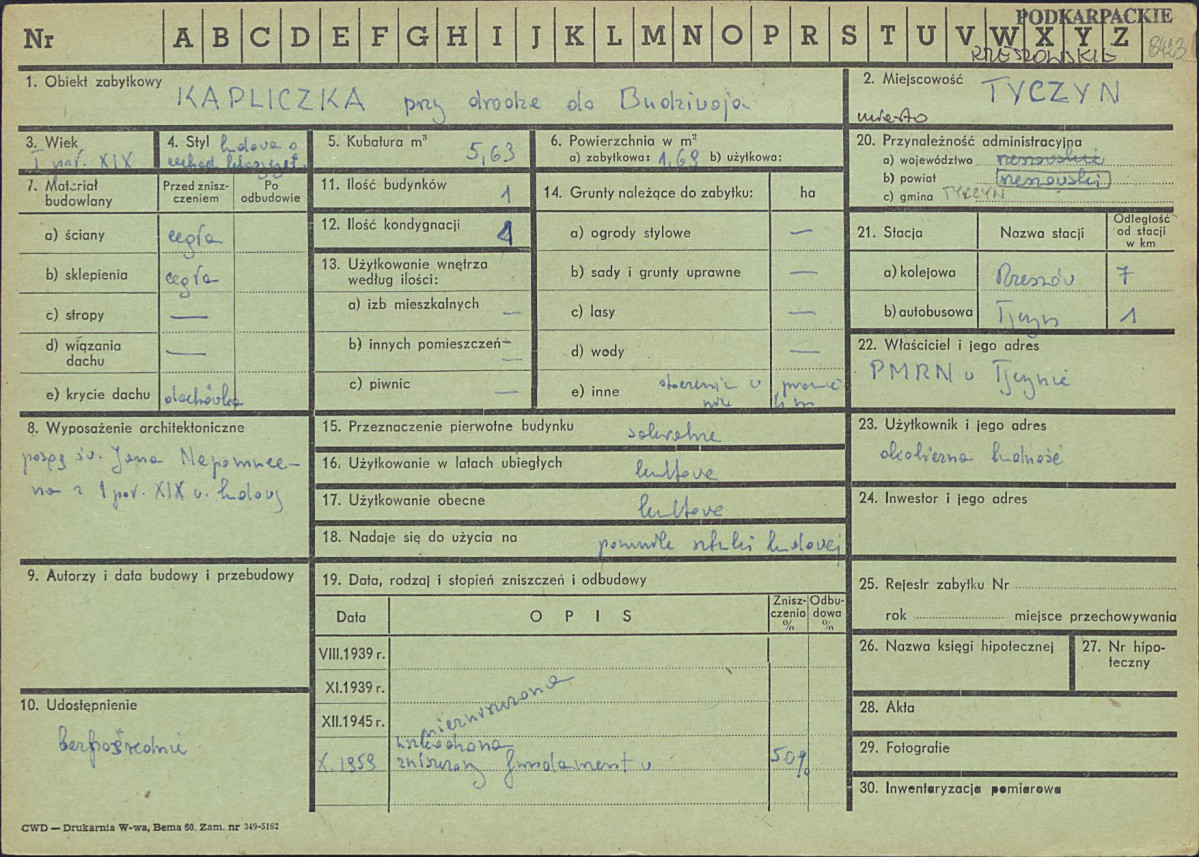 PODKARPACKIE
Nr A B C D E F G H I J K L M N O P R S T U V W X Y Z 8423
RZESZOWSKIE
1. Obiekt zabytkowy
KAPLICZKA przy drodze do Budziwoja
2. Miejscowość
TYCZYN
miasto
3. Wiek
I poł. XIX
4. Styl ludowa o
5. Kubatura m³
5,63
6. Powierzchnia w m²
a) zabytkowa: 1,69 b) użytkowa:
20. Przynależność administracyjna
a) województwo rzeszowskie
b) powiat rzeszowski
c) gmina TYCZYN
7. Materiał budowlany
Przed zniszczeniem
Po odbudowie
a) ściany cegła
b) sklepienia cegła
c) stropy —
d) wiązania dachu —
e) krycie dachu dachówka
11. Ilość budynków 1
12. Ilość kondygnacji 1
13. Użytkowanie wnętrza według ilości:
a) izb mieszkalnych —
b) innych pomieszczeń —
c) piwnic —
14. Grunty należące do zabytku: ha
a) ogrody stylowe —
b) sady i grunty uprawne —
c) lasy —
d) wody —
e) inne otoczenie w promie
4 m
21. Stacja
Nazwa stacji
Odległość od stacji w km
a) kolejowa Rzeszów 7
b) autobusowa Tyczyn 1
22. Właściciel i jego adres
PMRN w Tyczynie
8. Wyposażenie architektoniczne
posąg św. Jana Nepomuce-
na z 1 poł. XIX w. ludowy
15. Przeznaczenie pierwotne budynku
sakralne
16. Użytkowanie w latach ubiegłych
kultowe
17. Użytkowanie obecne
kultowe
18. Nadaje się do użycia na
pomnik sztuki ludowej
23. Użytkownik i jego adres
okoliczna ludność
24. Inwestor i jego adres
9. Autorzy i data budowy i przebudowy
19. Data, rodzaj i stopień zniszczeń i odbudowy
Data
OPIS
Zniszczenia %
Odbudowa %
VIII.1939 r.
XI.1939 r.
XII.1945 r. niezniszczona
uszkodzona
X.1959 zniszczony fundament w 50%
25. Rejestr zabytku Nr
rok miejsce przechowywania
26. Nazwa księgi hipotecznej
27. Nr hipoteczny
28. Akta
29. Fotografie
30. Inwentaryzacja pomiarowa
10. Udostępnienie
bezpośrednie
CWD — Drukarnia W-wa, Bema 60. Zam. nr 349-5162